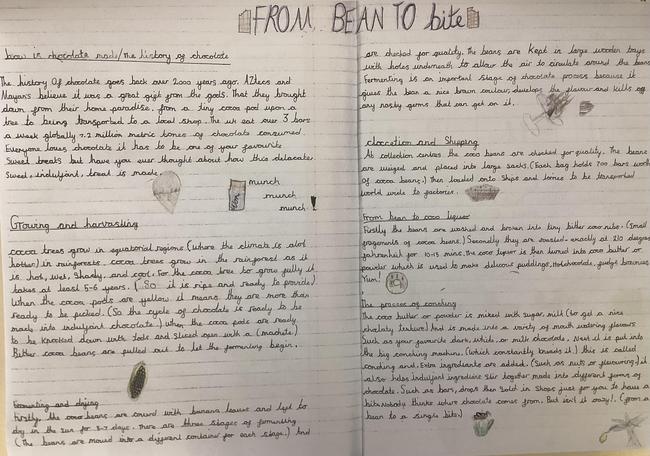 FROM BEAN TO bite
how is chocolate made/the history of chocolate
The history Of chocolate goes back over 2000 years ago. Aztecs and
Mayan's believe it was a great gift from the gods. That they brought
down from their home paradise. from a tiny cocoa pod upon a
tree to being transported to a local shop. The uk eat over 3 bars
a week globally 7.2 million metric tones of chocolate consumed.
Everyone loves chocolate it has to be one of your favourite
Sweet treats but have you ever thought about how this delacate
Sweet, indulgiant, treat is made.
munch
munch
munch!
Growing and harvasting
cocoa trees grow in equatorial regions (where the climate is alot
hotter) in rainforests. cocoa trees grow in the rainforest as it
is hot, wet, Shady, and cool. For the cocoa tree to grow fully it
takes at least 5-6 years. (So it is ripe and ready to provide)
When the cocoa pods are yellow it means they are more than
ready to be picked. (So the cycle of chocolate is ready to be
made into indulgiant chocolate.) when the cocoa pods are ready
to be knocked down with and sliced open with a (machete)
Bitter cocoa beans are pulled out to let the fermenting begin.
Fermenting and drying
Firstly, the coco beans are coverd with banana leaves and left to
dry in the sun for 5-7 days. There are three stages of fermenting
(The beans are moved into a different container for each stage.) And
are checked for quality. The beans are Kept in large wooden trays
with holes underneath to allow the air to circulate around the beans
Fermenting is an important stage of chocolate process because it
gives the bean a nice brown colour, develops the flavour and kills of
any nasty germs that can get on it.
cloccetion and Shipping
At collection centres the coco beans are checked for quality. The beans
are weiged and placed into large sacks. (Each bag holds 700 bars worth
of cocoa beans.) Then loaded onto Ships and lorries to be transported
world wide to factories.
From bean to coco liquor
Firstly the beans are washed and broken into tiny bitter coco nibs. (Small
fragements of cocoa beans.) Secondly they are roasted exactly at 210 degrees
fahrenheit for 10-15 mins. the coco liquer is then turned into coco butter or
powder which is used to make delicous puddings, hotchocolate, fudge brownies.
Yum!
The process of conching
The coco butter or powder is mixed with sugar, milk (to get a nice
choclaty texture) And is made into a variety of mouth watering flavours
Such as your favourite dark, white, or milk chocolate. Next it is put into
the big conching machine. (which constantly kneads it) this is called
conching and. Extra ingredients are added. (Such as nuts or flavouring.) it
also helps indulgant ingredients stir together made into different forms of
chocolate. Such as bars, drops then Sold in Shops just for you to have a
bite. Nobody thinks where chocolate comes from. But isn't it crazy!. (from a
bean to a single bite.)